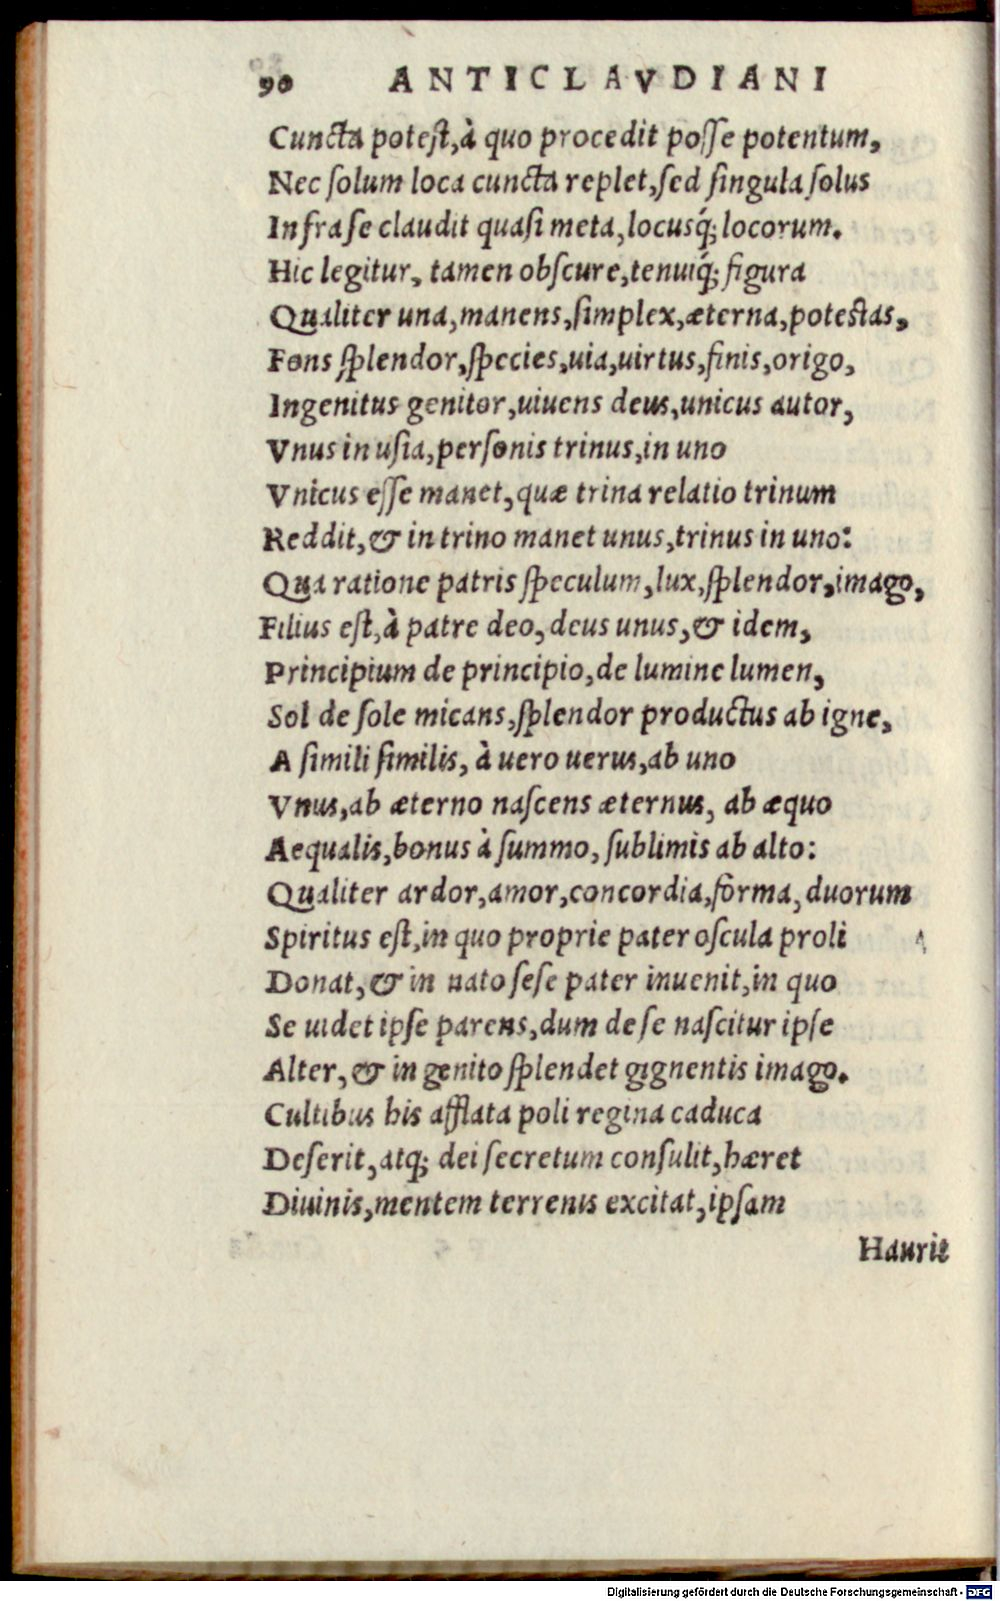 90 ANTICLAVDIANI
Cuncta poteſt, à quo procedit poſſe potentum,
Nec ſolum loca cuncta replet, ſed ſingula ſolus
Infra ſe claudit quaſi meta, locusq́; locorum.
Hic legitur, tamen obſcure, tenuiq́; figura
Qualiter una, manens, ſimplex, æterna, poteſtas,
Fons ſplendor, ſpecies, uia, uirtus, finis, origo,
Ingenitus genitor, uiuens deus, unicus autor,
Vnus in uſia, perſonis trinus, in uno
Vnicus eſſe manet, quæ trina relatio trinum
Reddit, & in trino manet unus, trinus in uno:
Qua ratione patris ſpeculum, lux, ſplendor, imago,
Filius eſt, à patre deo, deus unus, & idem,
Principium de principio, de lumine lumen,
Sol de ſole micans, ſplendor productus ab igne,
A ſimili ſimilis, à uero uerus, ab uno
Vnus, ab æterno naſcens æternus, ab æquo
Aequalis, bonus à ſummo, ſublimis ab alto:
Qualiter ardor, amor, concordia, forma, duorum
Spiritus eſt, in quo proprie pater oſcula proli
Donat, & in nato ſeſe pater inuenit, in quo
Se uidet ipſe parens, dum de ſe naſcitur ipſe
Alter, & in genito ſplendet gignentis imago.
Cultibus his afflata poli regina caduca
Deſerit, atq; dei ſecretum conſulit, hæret
Diuinis, mentem terrenis excitat, ipſam
Haurit
Digitalisierung gefördert durch die Deutsche Forschungsgemeinschaft - DFG